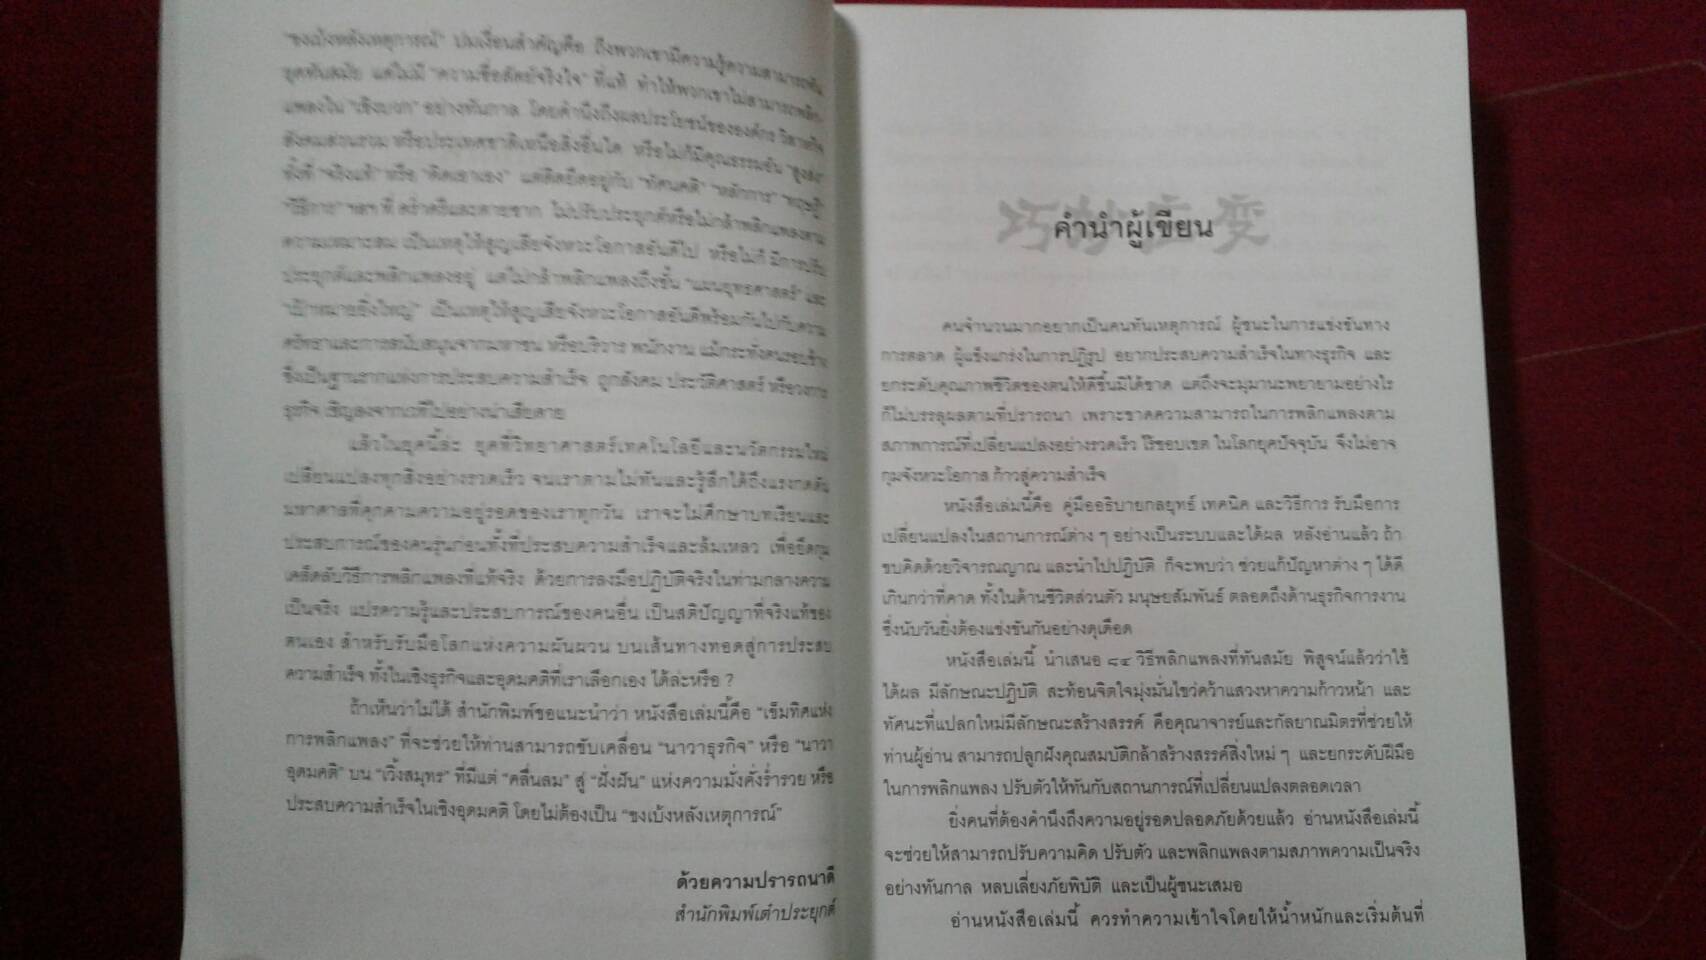 "ขงเบ้งหลังเหตุการณ์" ปมเงื่อนสำคัญคือ ถึงพวกเขามีความรู้ความสามารถทัน
ยุคทันสมัย แต่ไม่มี "ความซื่อสัตย์จริงใจ" ที่แท้ ทำให้พวกเขาไม่สามารถพลิก-
แพลงใน "เชิงบวก" อย่างทันกาล โดยคำนึงถึงผลประโยชน์ขององค์กร วิสาหกิจ
สังคมส่วนรวม หรือประเทศชาติเหนือสิ่งอื่นใด หรือไม่ก็มีคุณธรรมอัน "สูงส่ง"
ทั้งที่ "จริงแท้" หรือ "คิดเอาเอง" แต่ติดยึดอยู่กับ "ทัศนคติ" "หลักการ" "ทฤษฎี"
"วิธีการ" ฯลฯ ที่ คร่ำครึและตายซาก ไม่ปรับประยุกต์หรือไม่กล้าพลิกแพลงตาม
ความเหมาะสม เป็นเหตุให้สูญเสียจังหวะโอกาสอันดีไป หรือไม่ก็ มีการปรับ
ประยุกต์และพลิกแพลงอยู่ แต่ไม่กล้าพลิกแพลงถึงขั้น "แผนยุทธศาสตร์" และ
"เป้าหมายยิ่งใหญ่" เป็นเหตุให้สูญเสียจังหวะโอกาสอันดีพร้อมกันไปกับความ
ศรัทธาและการสนับสนุนจากมหาชน หรือบริวาร พนักงาน แม้กระทั่งคนรอบข้าง
ซึ่งเป็นฐานรากแห่งการประสบความสำเร็จ ถูกสังคม ประวัติศาสตร์ หรือวงการ
ธุรกิจ เชิญลงจากเวทีไปอย่างน่าเสียดาย
แล้วในยุคนี้ล่ะ ยุคที่วิทยาศาสตร์เทคโนโลยีและนวัตกรรมใหม่
เปลี่ยนแปลงทุกสิ่งอย่างรวดเร็ว จนเราตามไม่ทันและรู้สึกได้ถึงแรงกดดัน
มหาศาลที่คุกคามความอยู่รอดของเราทุกวัน เราจะไม่ศึกษาบทเรียนและ
ประสบการณ์ของคนรุ่นก่อนทั้งที่ประสบความสำเร็จและล้มเหลว เพื่อยึดกุม
เคล็ดลับวิธีการพลิกแพลงที่แท้จริง ด้วยการลงมือปฏิบัติจริงในท่ามกลางความ
เป็นจริง แปรความรู้และประสบการณ์ของคนอื่น เป็นสติปัญญาที่จริงแท้ของ
ตนเอง สำหรับรับมือโลกแห่งความผันผวน บนเส้นทางทอดสู่การประสบ
ความสำเร็จ ทั้งในเชิงธุรกิจและอุดมคติที่เราเลือกเอง ได้ละหรือ ?
ถ้าเห็นว่าไม่ได้ สำนักพิมพ์ขอแนะนำว่า หนังสือเล่มนี้คือ "เข็มทิศแห่ง
การพลิกแพลง" ที่จะช่วยให้ท่านสามารถขับเคลื่อน "นาวาธุรกิจ" หรือ "นาวา
อุดมคติ" บน "เวิ้งสมุทร" ที่มีแต่ "คลื่นลม" สู่ "ฝั่งฝัน" แห่งความมั่งคั่งร่ำรวย หรือ
ประสบความสำเร็จในเชิงอุดมคติ โดยไม่ต้องเป็น "ขงเบ้งหลังเหตุการณ์"
ด้วยความปรารถนาดี
สำนักพิมพ์เต๋าประยุกต์
巧妙应变
คำนำผู้เขียน
คนจำนวนมากอยากเป็นคนทันเหตุการณ์ ผู้ชนะในการแข่งขันทาง
การตลาด ผู้แข็งแกร่งในการปฏิรูป อยากประสบความสำเร็จในทางธุรกิจ และ
ยกระดับคุณภาพชีวิตของตนให้ดีขึ้นมิได้ขาด แต่ถึงจะมุมานะพยายามอย่างไร
ก็ไม่บรรลุผลตามที่ปรารถนา เพราะขาดความสามารถในการพลิกแพลงตาม
สภาพการณ์ที่เปลี่ยนแปลงอย่างรวดเร็ว ไร้ขอบเขต ในโลกยุคปัจจุบัน จึงไม่อาจ
กุมจังหวะโอกาส ก้าวสู่ความสำเร็จ
หนังสือเล่มนี้คือ คู่มืออธิบายกลยุทธ์ เทคนิค และวิธีการ รับมือการ
เปลี่ยนแปลงในสถานการณ์ต่าง ๆ อย่างเป็นระบบและได้ผล หลังอ่านแล้ว ถ้า
ขบคิดด้วยวิจารณญาณ และนำไปปฏิบัติ ก็จะพบว่า ช่วยแก้ปัญหาต่าง ๆ ได้ดี
เกินกว่าที่คาด ทั้งในด้านชีวิตส่วนตัว มนุษยสัมพันธ์ ตลอดถึงด้านธุรกิจการงาน
ซึ่งนับวันยิ่งต้องแข่งขันกันอย่างดุเดือด
หนังสือเล่มนี้ นำเสนอ ๘๔ วิธีพลิกแพลงที่ทันสมัย พิสูจน์แล้วว่าใช้
ได้ผล มีลักษณะปฏิบัติ สะท้อนจิตใจมุ่งมั่นไขว่คว้าแสวงหาความก้าวหน้า และ
ทัศนะที่แปลกใหม่มีลักษณะสร้างสรรค์ คือคุณาจารย์และกัลยาณมิตรที่ช่วยให้
ท่านผู้อ่าน สามารถปลูกฝังคุณสมบัติกล้าสร้างสรรค์สิ่งใหม่ ๆ และยกระดับฝีมือ
ในการพลิกแพลง ปรับตัวให้ทันกับสถานการณ์ที่เปลี่ยนแปลงตลอดเวลา
ยิ่งคนที่ต้องคำนึงถึงความอยู่รอดปลอดภัยด้วยแล้ว อ่านหนังสือเล่มนี้
จะช่วยให้สามารถปรับความคิด ปรับตัว และพลิกแพลงตามสภาพความเป็นจริง
อย่างทันกาล หลบเลี่ยงภัยพิบัติ และเป็นผู้ชนะเสมอ
อ่านหนังสือเล่มนี้ ควรทำความเข้าใจโดยให้น้ำหนักและเริ่มต้นที่